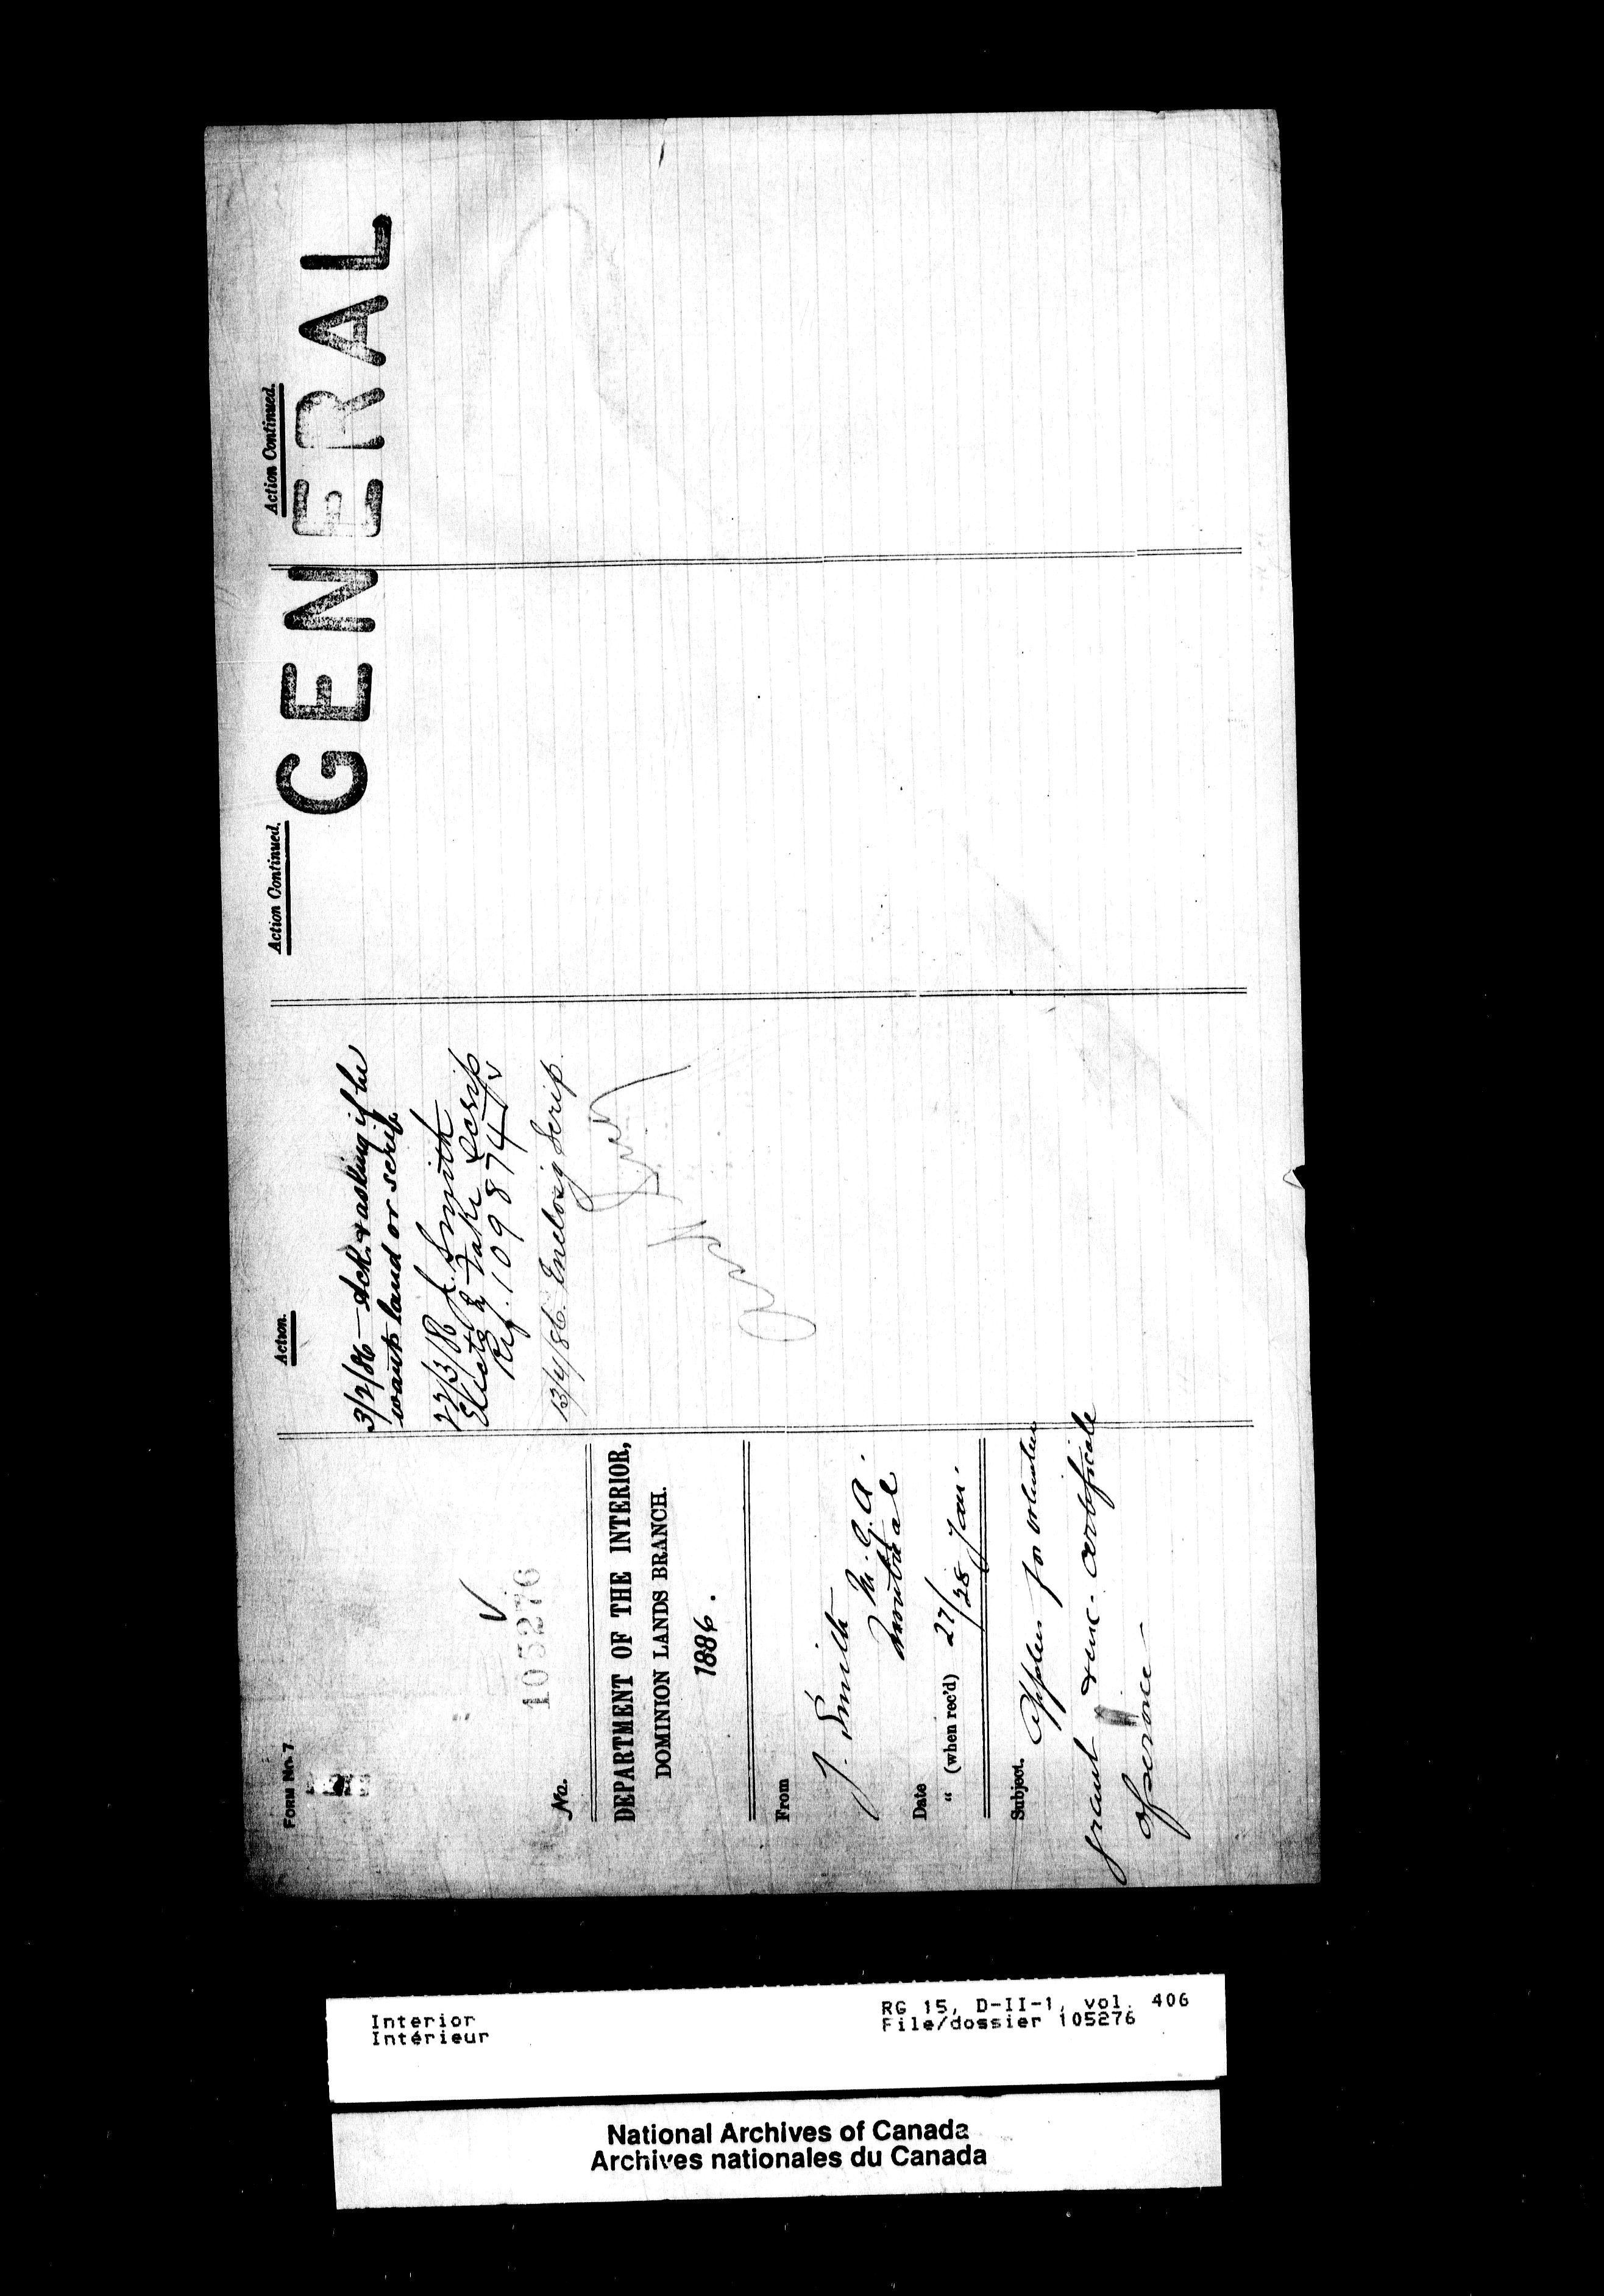 FORM No. 7
No. 105276
DEPARTMENT OF THE INTERIOR,
DOMINION LANDS BRANCH.
1886.
From
J. Smith
M. G. A.
Montreal
Date 27/
" (when rec'd) 28 Jan.
Subject. Applies for volunteer
grant & enc. certificate
of service
Action.
3/2/86 — Ack. & asking if he
wants land or scrip
22/3/86 J. Smith
Elects to take Scrip
Ref. 109874
13/4/86. Enclosg Scrip.
Action Continued.
Action Continued.
GENERAL
Interior
Intérieur
RG 15, D-II-1, vol. 406
File/dossier 105276
National Archives of Canada
Archives nationales du Canada